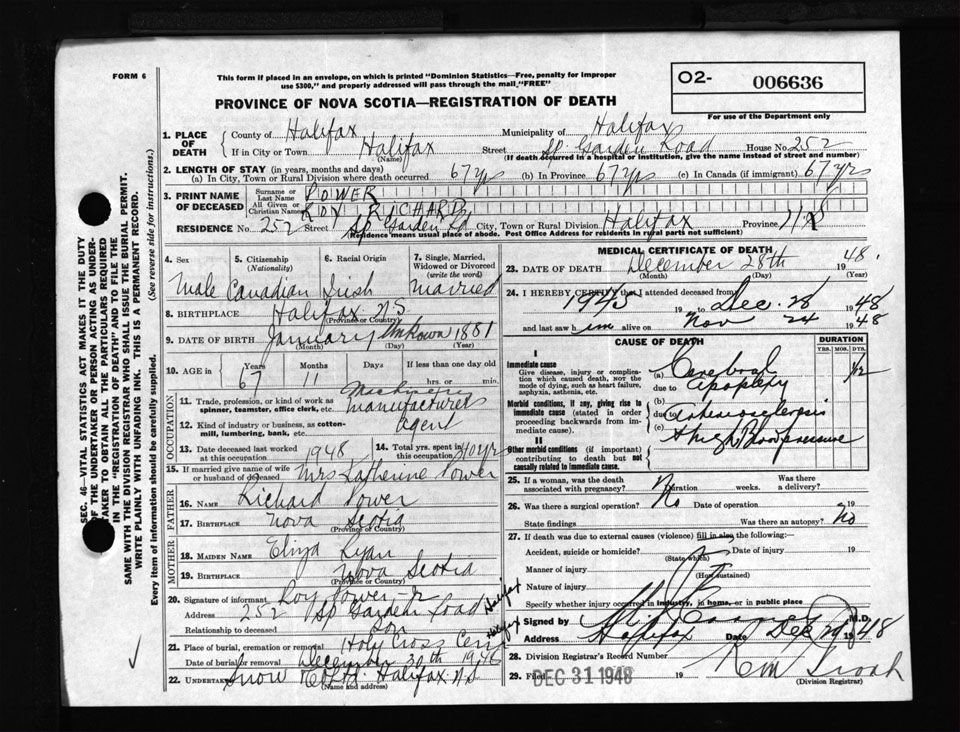 FORM 6
This form if placed in an envelope, on which is printed "Dominion Statistics—Free, penalty for improper
use $300," and properly addressed will pass through the mail "FREE"
O2- 006636
For use of the Department only
PROVINCE OF NOVA SCOTIA—REGISTRATION OF DEATH
1. PLACE OF DEATH { County of Halifax Municipality of Halifax
If in City or Town Halifax Street Sp Garden Road House No. 252
(Name) (If death occurred in a hospital or institution, give the name instead of street and number)
2. LENGTH OF STAY (in years, months and days)
(a) In City, Town or Rural Division where death occurred 67 yrs (b) In Province 67 yrs (c) In Canada (if immigrant) 67 yrs
3. PRINT NAME OF DECEASED { Surname or Last Name POWER
All Given or Christian Names ROY RICHARD
RESIDENCE No. 252 Street Sp Garden Rd City, Town or Rural Division Halifax Province
(Residence means usual place of abode. Post Office Address for residents in rural parts not sufficient)
4. Sex 5. Citizenship (Nationality) 6. Racial Origin 7. Single, Married, Widowed or Divorced (write the word)
Male Canadian Irish Married
8. BIRTHPLACE Halifax N S
(Province or Country)
9. DATE OF BIRTH January Unkown 1881
(Month) (Day) (Year)
10. AGE in Years 67 Months 11 If less than one day old hrs. or min.
11. Trade, profession or kind of work as
spinner, teamster, office clerk, etc.
12. Kind of industry or business, as cotton-
mill, lumbering, bank, etc.
manufacturers
agent
13. Date deceased last worked at this occupation 1948 14. Total yrs. spent in this occupation 40 yrs
15. If married give name of wife or husband of deceased Mrs Katherine Power
FATHER
16. NAME Richard Power
17. BIRTHPLACE Nova Scotia
(Province or Country)
MOTHER
18. MAIDEN NAME Eliza Ryan
19. BIRTHPLACE Nova Scotia
(Province or Country)
20. Signature of informant Roy Power Jr
Address 252 Sp Garden Road Halifax
Relationship to deceased Son
21. Place of burial, cremation or removal Holy Cross Cem Halifax
Date of burial or removal December 30th 1948
22. UNDERTAKER Snow & Co Ltd. Halifax N.S
(Name and address)
OCCUPATION
MEDICAL CERTIFICATE OF DEATH
23. DATE OF DEATH December 28th 1948
(Month) (Day) (Year)
24. I HEREBY CERTIFY that I attended deceased from
1945 to Dec. 28 1948
and last saw him alive on Nov 24 1948
CAUSE OF DEATH DURATION
YRS. MOS. DYS.
I
Immediate cause
Give disease, injury or complica-
tion which caused death, not the
mode of dying, such as heart failure,
asphyxia, asthenia, etc.
(a) Cerebral
due to apoplexy 1/2
Morbid conditions, if any, giving rise to
immediate cause (stated in order
proceeding backwards from im-
mediate cause).
(b)
due to
(c) & high Blood pressure
II
Other morbid conditions (if important)
contributing to death but not
causally related to immediate cause.
25. If a woman, was the death associated with pregnancy? No Duration weeks. Was there a delivery?
26. Was there a surgical operation? No Date of operation 19
State findings Was there an autopsy? No
27. If death was due to external causes (violence) fill in also the following:
Accident, suicide or homicide? Date of injury 19
(State which)
Manner of injury
(How sustained)
Nature of injury
Specify whether injury occurred in industry, in home, or in public place
Signed by M.D.
Address Halifax Date Dec 29 1948
28. Division Registrar's Record Number
29. Filed DEC 31 1948 19
(Division Registrar)
SEC. 46—VITAL STATISTICS ACT MAKES IT THE DUTY
OF THE UNDERTAKER OR PERSON ACTING AS UNDER-
TAKER TO OBTAIN ALL THE PARTICULARS REQUIRED
IN THE "REGISTRATION OF DEATH" AND TO FILE THE
SAME WITH THE DIVISION REGISTRAR WHO SHALL ISSUE THE BURIAL PERMIT.
WRITE PLAINLY WITH UNFADING INK. THIS IS A PERMANENT RECORD.
Every item of information should be carefully supplied. (See reverse side for instructions.)